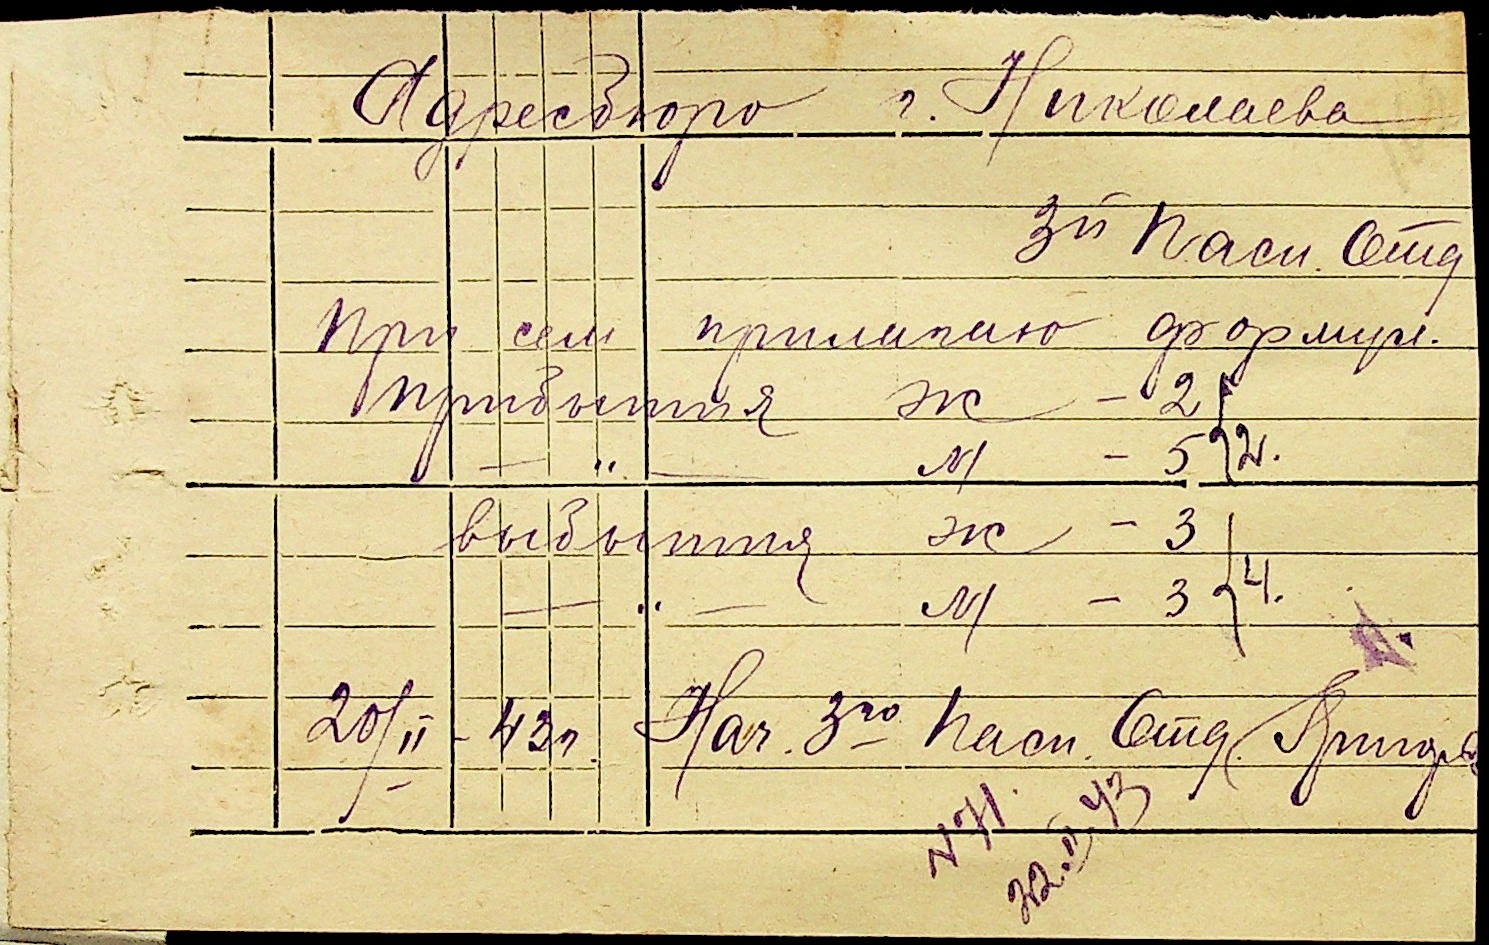 Адресбюро г. Николаева
3й Пасп. Отд
При сем прилагаю формул.
Прибытия Ж – 2
— " — М – 5 } 2.
выбытия Ж – 3
— " — М – 3 } 4.
20/II – 43 г. Нач. 3го Пасп. Отд.
N 71.
22.II 43